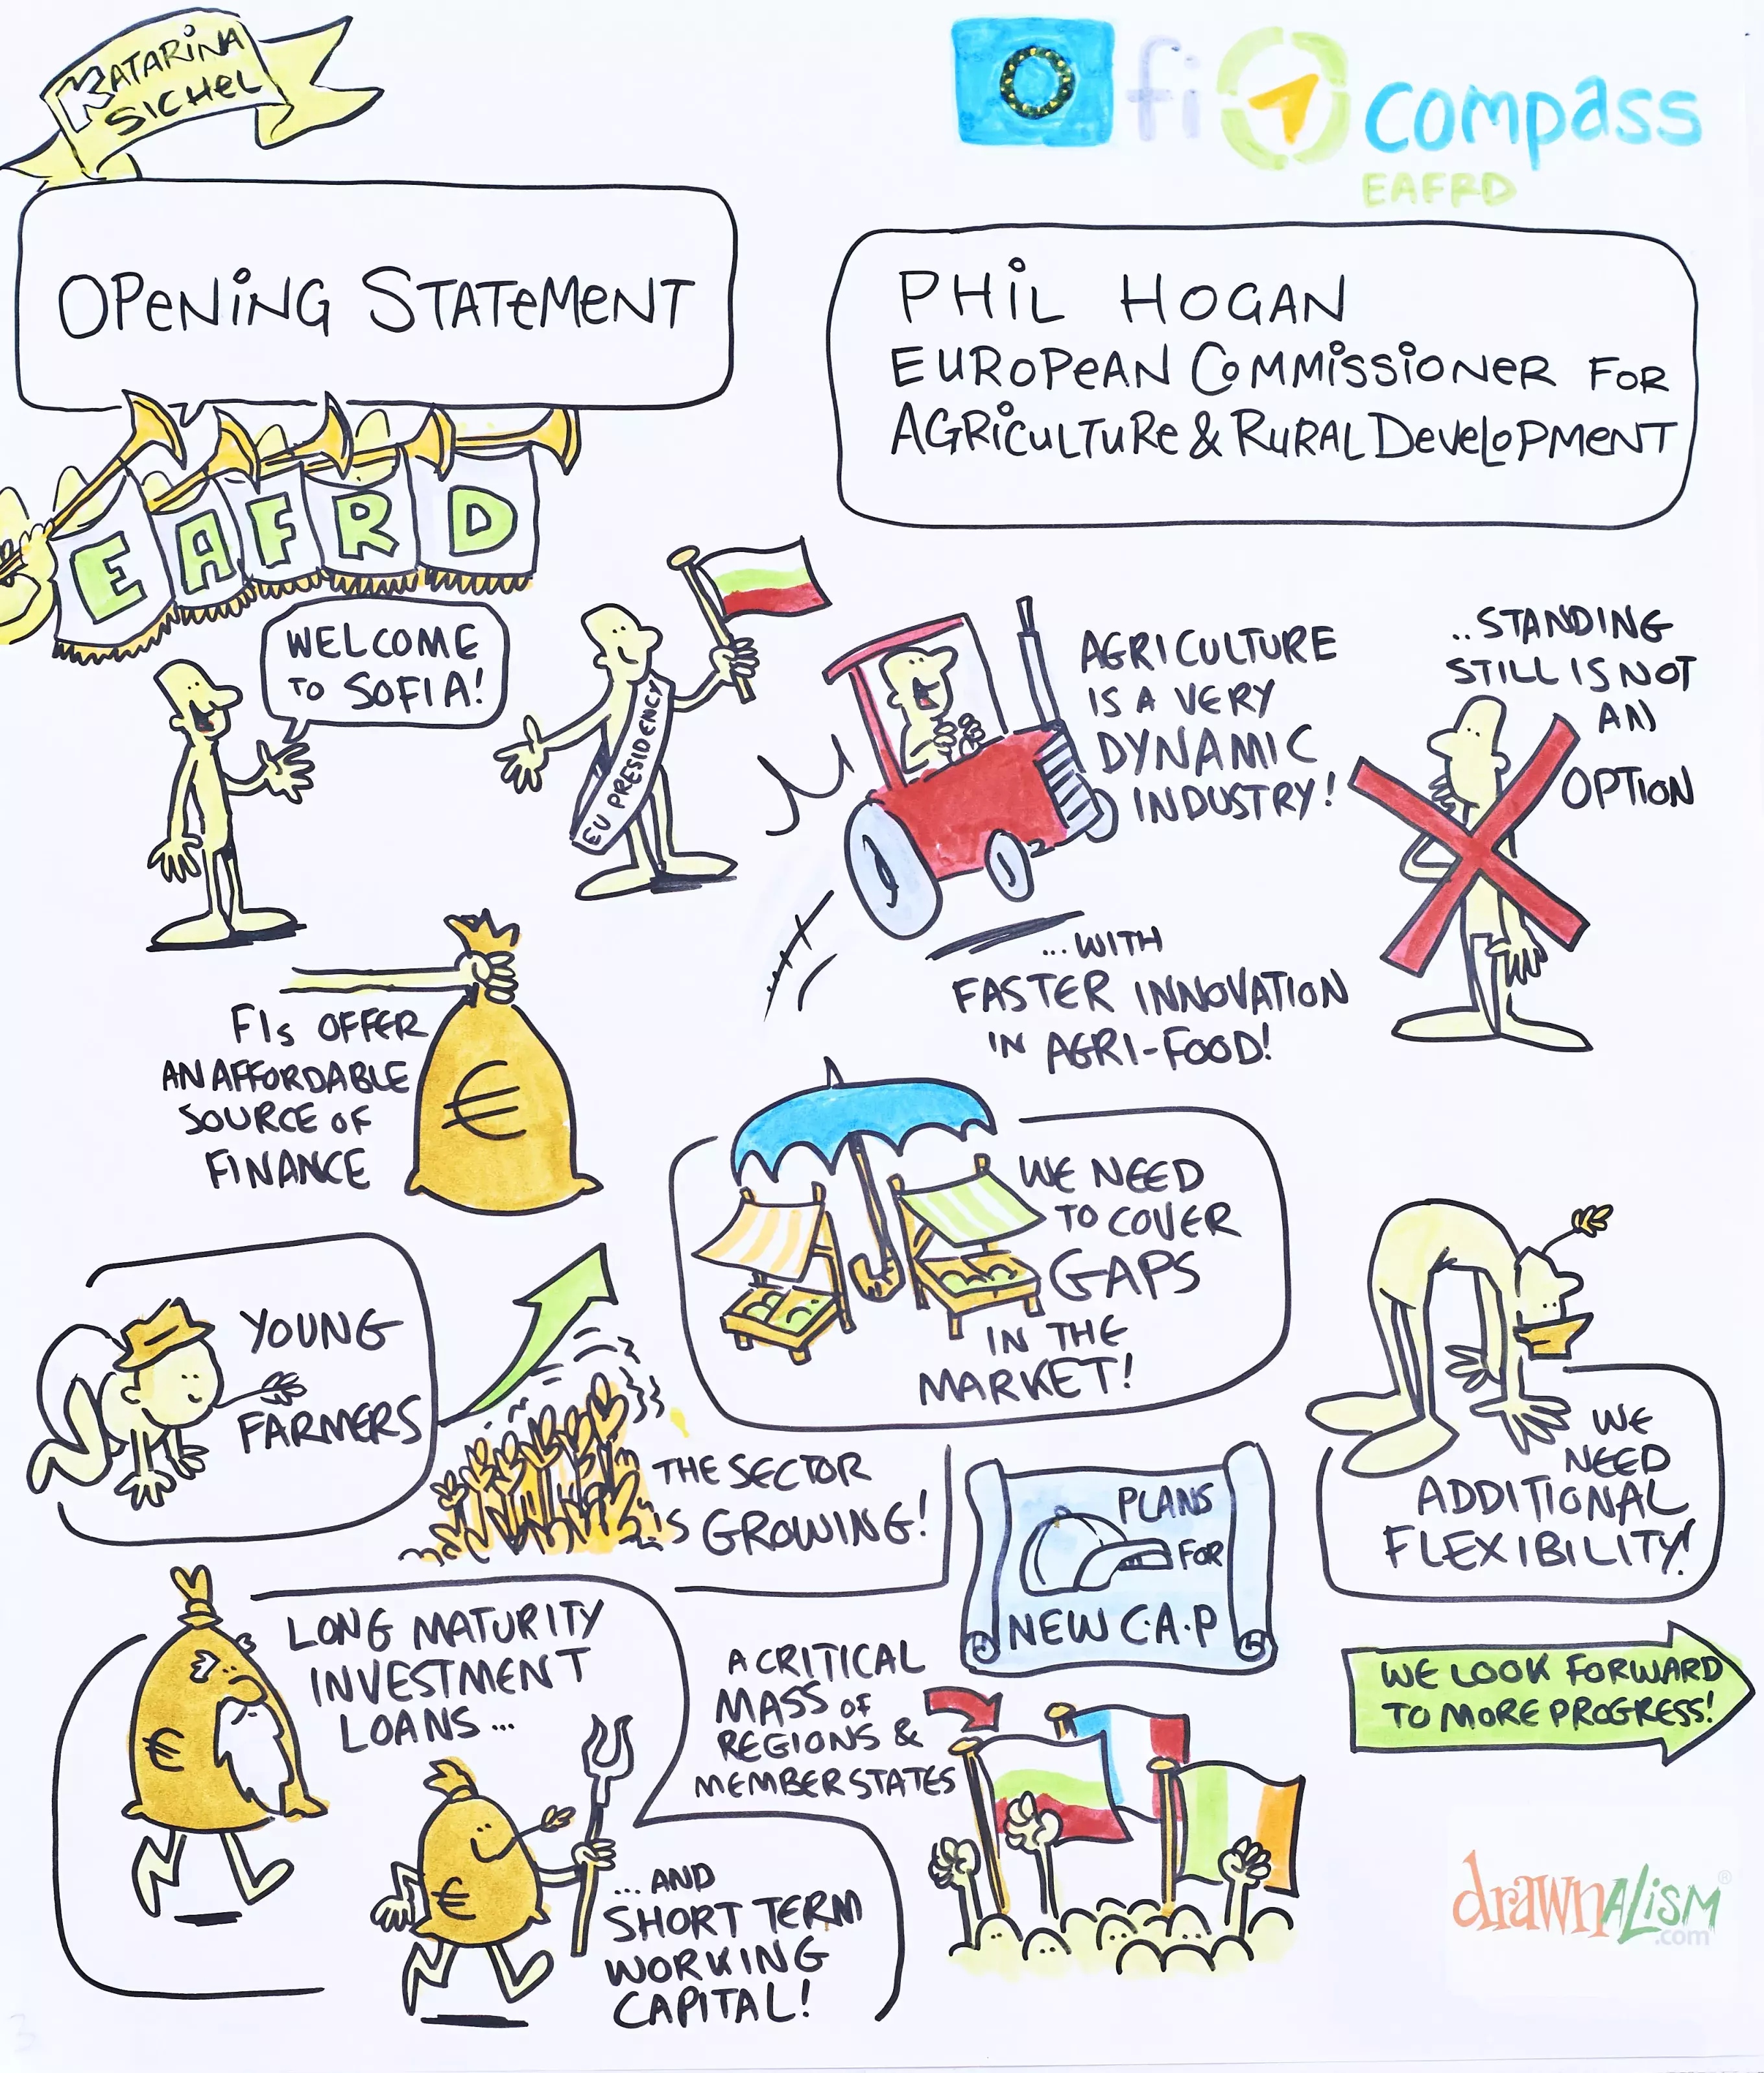 KATARINA
SICHEL
fi compass
EAFRD
OPENING STATEMENT
PHIL HOGAN
EUROPEAN COMMISSIONER FOR
AGRICULTURE & RURAL DEVELOPMENT
EAFRD
WELCOME
TO SOFIA!
EU PRESIDENCY
AGRICULTURE
IS A VERY
DYNAMIC
INDUSTRY!
..STANDING
STILL IS NOT
AN
OPTION
...WITH
FASTER INNOVATION
IN AGRI-FOOD!
FIs OFFER
AN AFFORDABLE
SOURCE OF
FINANCE
€
WE NEED
TO COVER
GAPS
IN THE
MARKET!
YOUNG
FARMERS
THE SECTOR
IS GROWING!
PLANS
FOR
NEW C.A.P
WE
NEED
ADDITIONAL
FLEXIBILITY!
LONG MATURITY
INVESTMENT
LOANS...
€
€
...AND
SHORT TERM
WORKING
CAPITAL!
A CRITICAL
MASS OF
REGIONS &
MEMBER STATES
WE LOOK FORWARD
TO MORE PROGRESS!
drawnalism®
.com
3